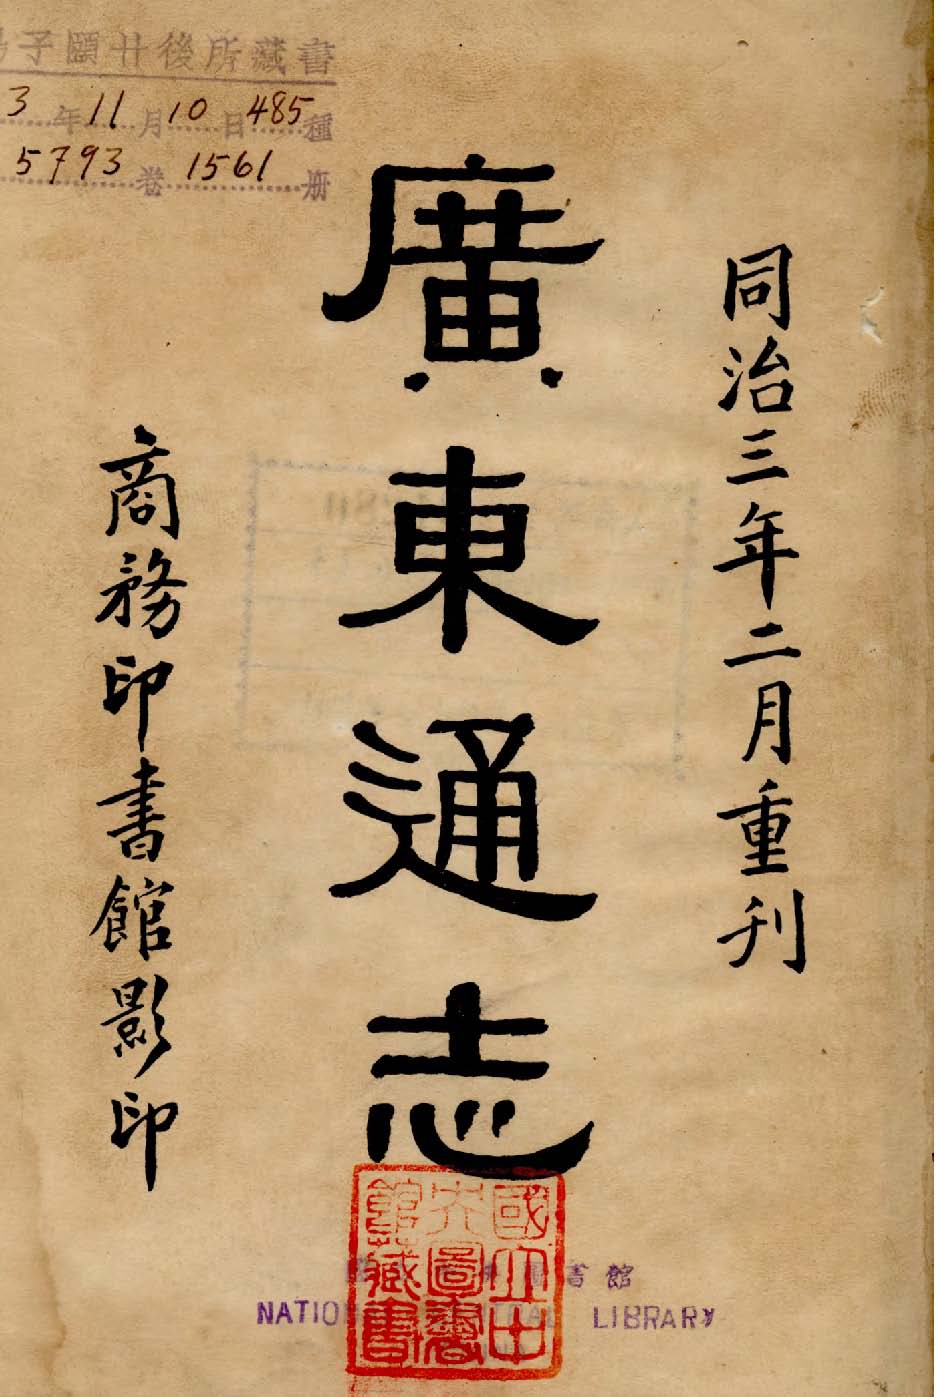 子頤廿後所藏書
3年11月10日485種
5793卷1561册
同治三年二月重刊
廣東通志
商務印書館影印
國立中
央圖書
館藏書
書館
NATIO LIBRARY